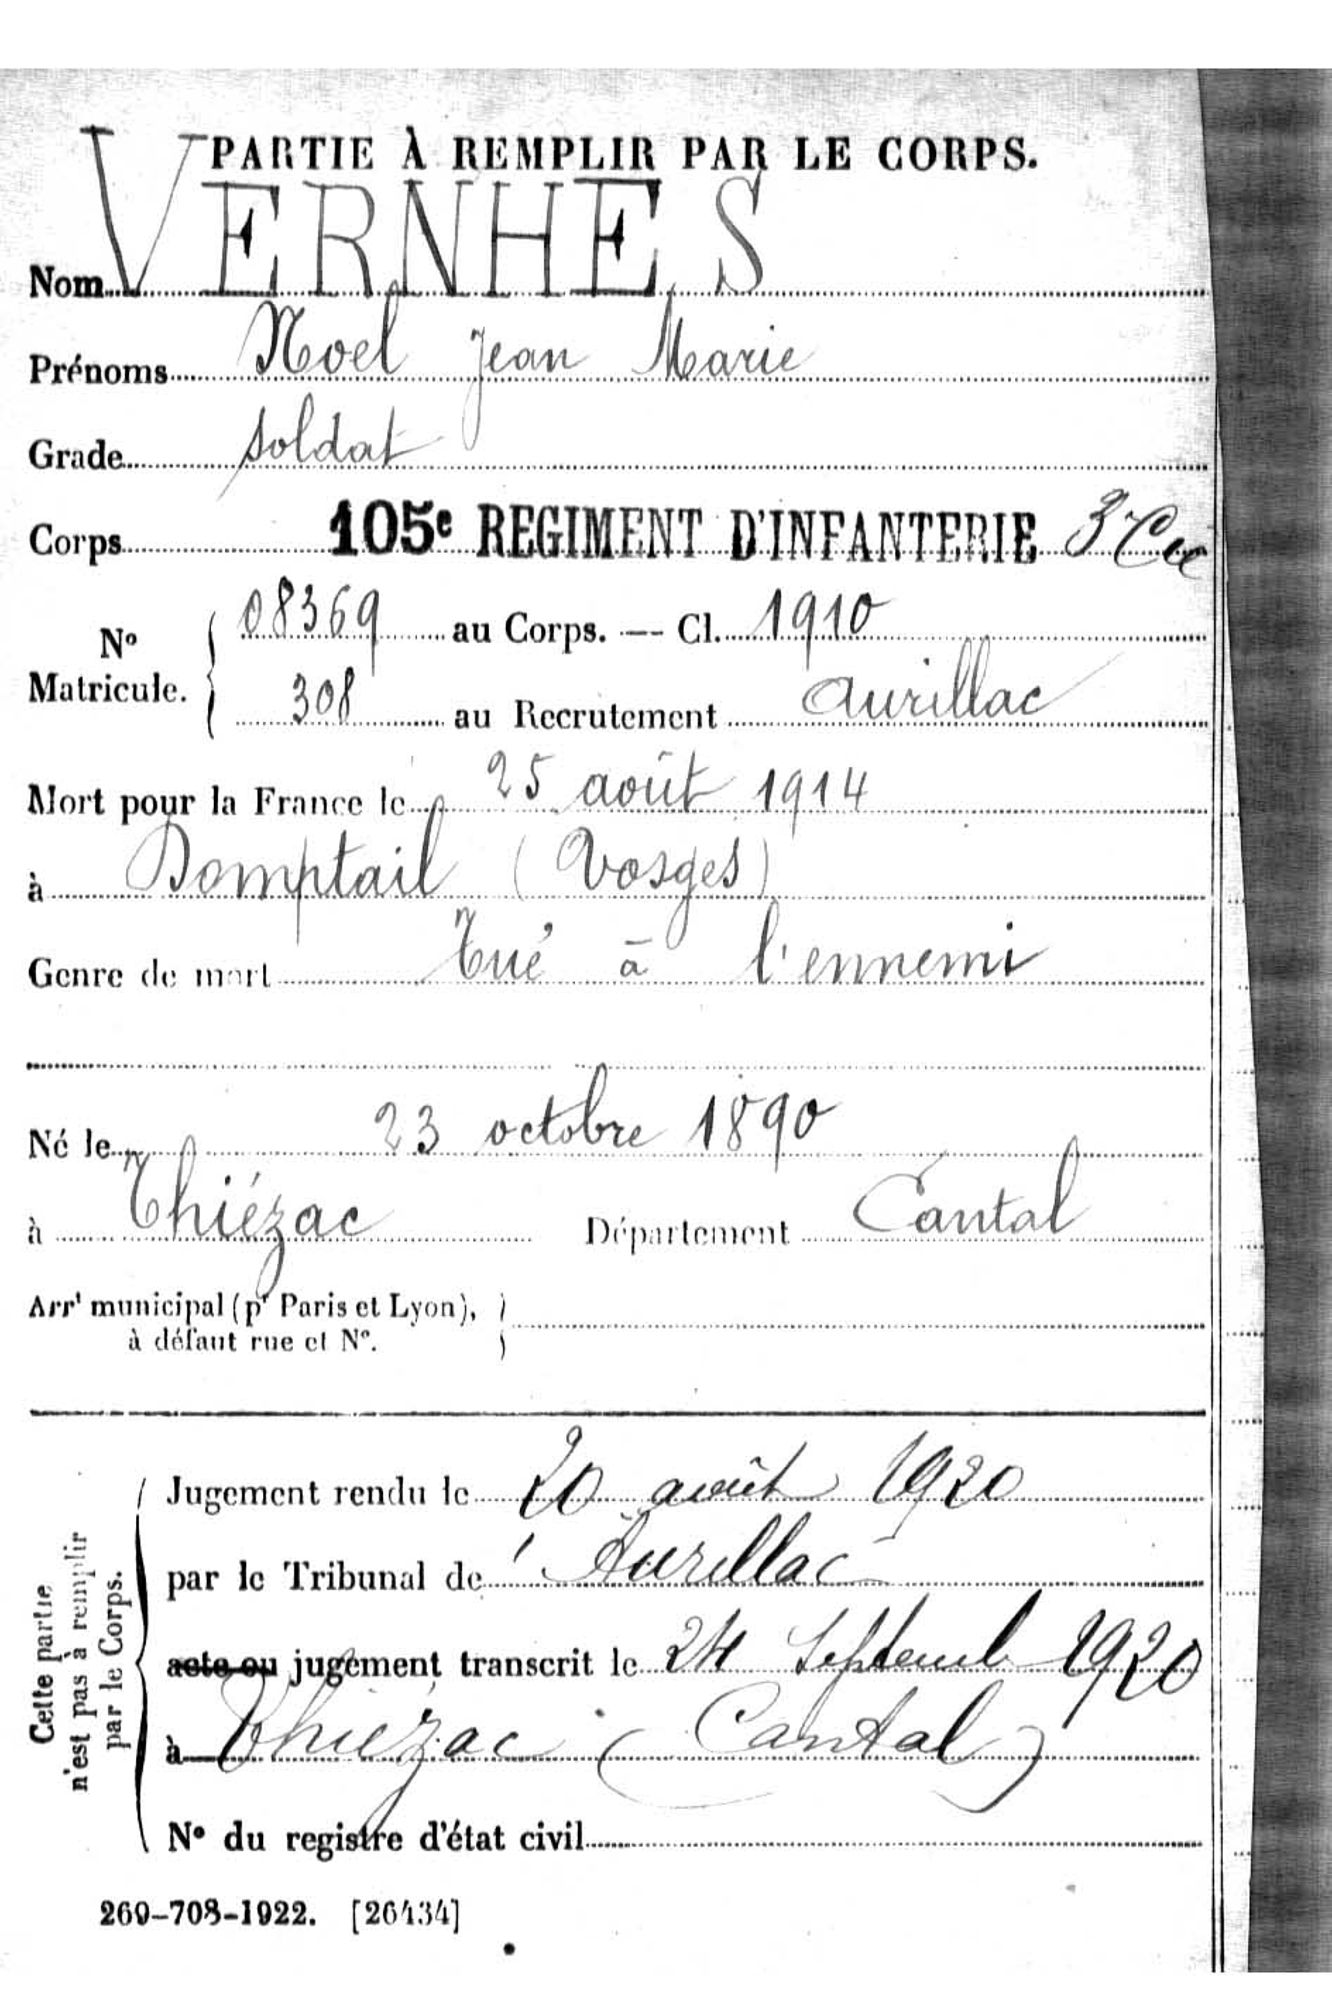 PARTIE À REMPLIR PAR LE CORPS.
Nom VERNHES
Prénoms Noel Jean Marie
Grade soldat
Corps 105e REGIMENT D'INFANTERIE 3e Cie
No Matricule. 08369 au Corps. — Cl. 1910
308 au Recrutement Aurillac
Mort pour la France le 25 août 1914
à Domptail (Vosges)
Genre de mort Tué à l'ennemi
Né le 23 octobre 1890
à Thiézac Département Cantal
Arrt municipal (pr Paris et Lyon),
à défaut rue et No.
Cette partie
n'est pas à remplir
par le Corps.
Jugement rendu le 20 août 1920
par le Tribunal de Aurillac
acte ou jugement transcrit le 24 Septemb 1920
à Thiézac (Cantal)
No du registre d'état civil
269-708-1922. [26434]